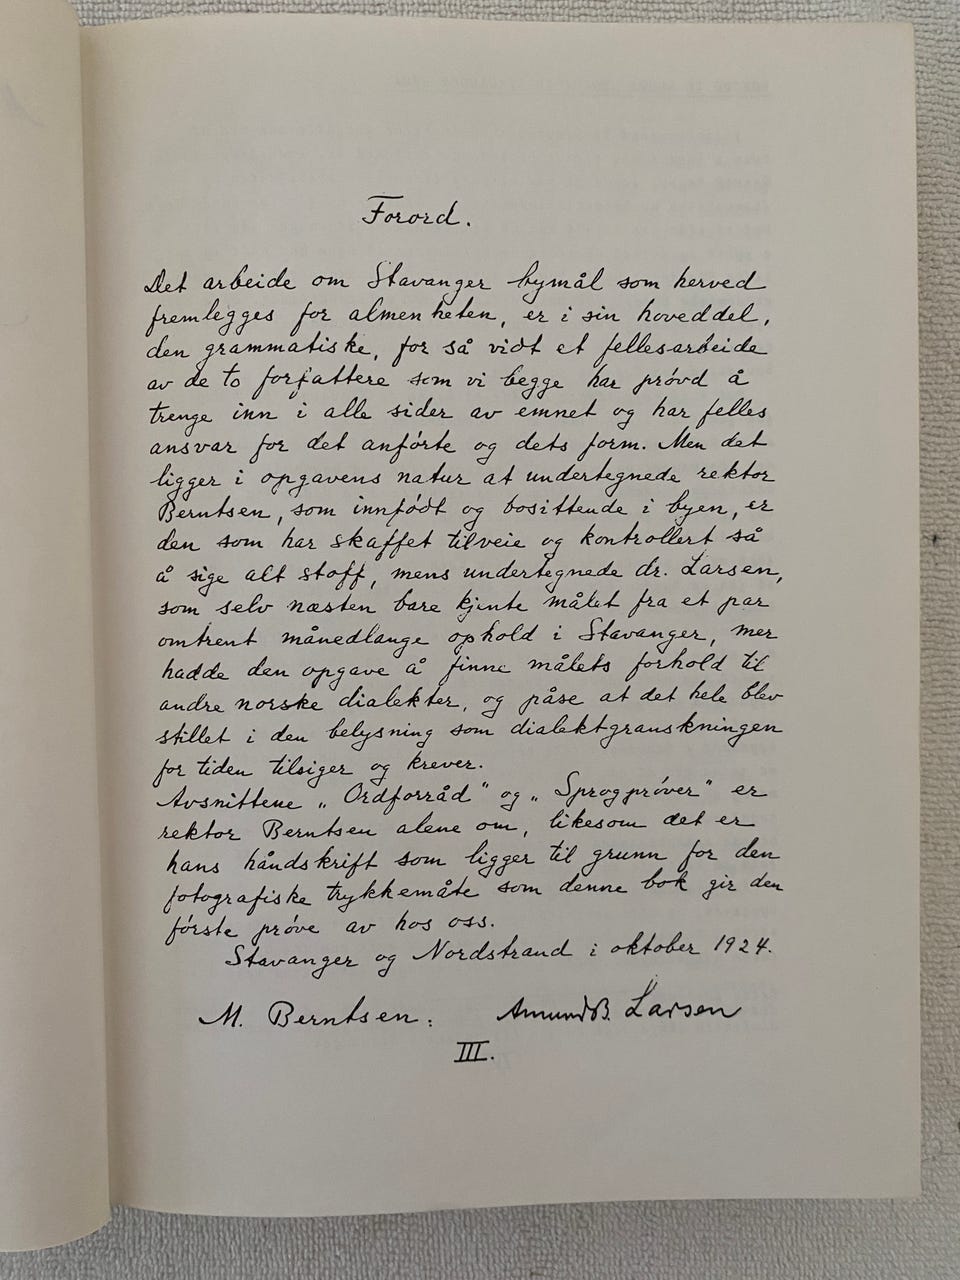 Forord.
Det arbeide om Stavanger bymål som herved
fremlegges for almenheten, er i sin hoveddel,
den grammatiske, for så vidt et fellesarbeide
av de to forfattere som vi begge har prövd å
trenge inn i alle sider av emnet og har felles
ansvar for det anförte og dets form. Men det
ligger i opgavens natur at undertegnede rektor
Berntsen, som innfödt og bosittende i byen, er
den som har skaffet tilveie og kontrollert så
å sige alt stoff, mens undertegnede dr. Larsen,
som selv næsten bare kjente målet fra et par
omtrent månedlange ophold i Stavanger, mer
hadde den opgave å finne målets forhold til
andre norske dialekter, og påse at det hele blev
stillet i den belysning som dialektgranskningen
for tiden tilsiger og krever.
Avsnittene „Ordforråd" og „Sprogpröver" er
rektor Berntsen alene om, likesom det er
hans håndskrift som ligger til grunn for den
fotografiske trykkemåte som denne bok gir den
förste pröve av hos oss.
Stavanger og Nordstrand i oktober 1924.
M. Berntsen. Amund B. Larsen
III.